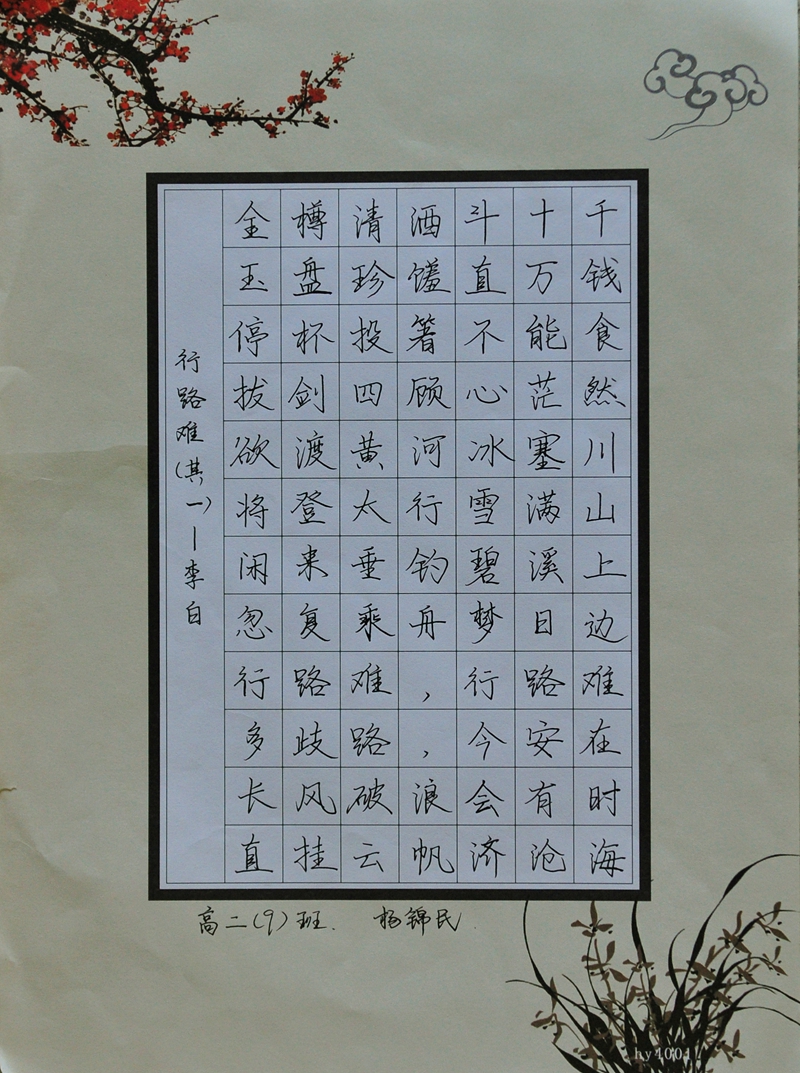 行路难(其一)—李白
金樽清酒斗十千
玉盘珍馐直万钱
停杯投箸不能食
拔剑四顾心茫然
欲渡黄河冰塞川
将登太行雪满山
闲来垂钓碧溪上
忽复乘舟梦日边
行路难，行路难
多歧路，今安在
长风破浪会有时
直挂云帆济沧海
高二(9)班. 杨锦民
hy4001